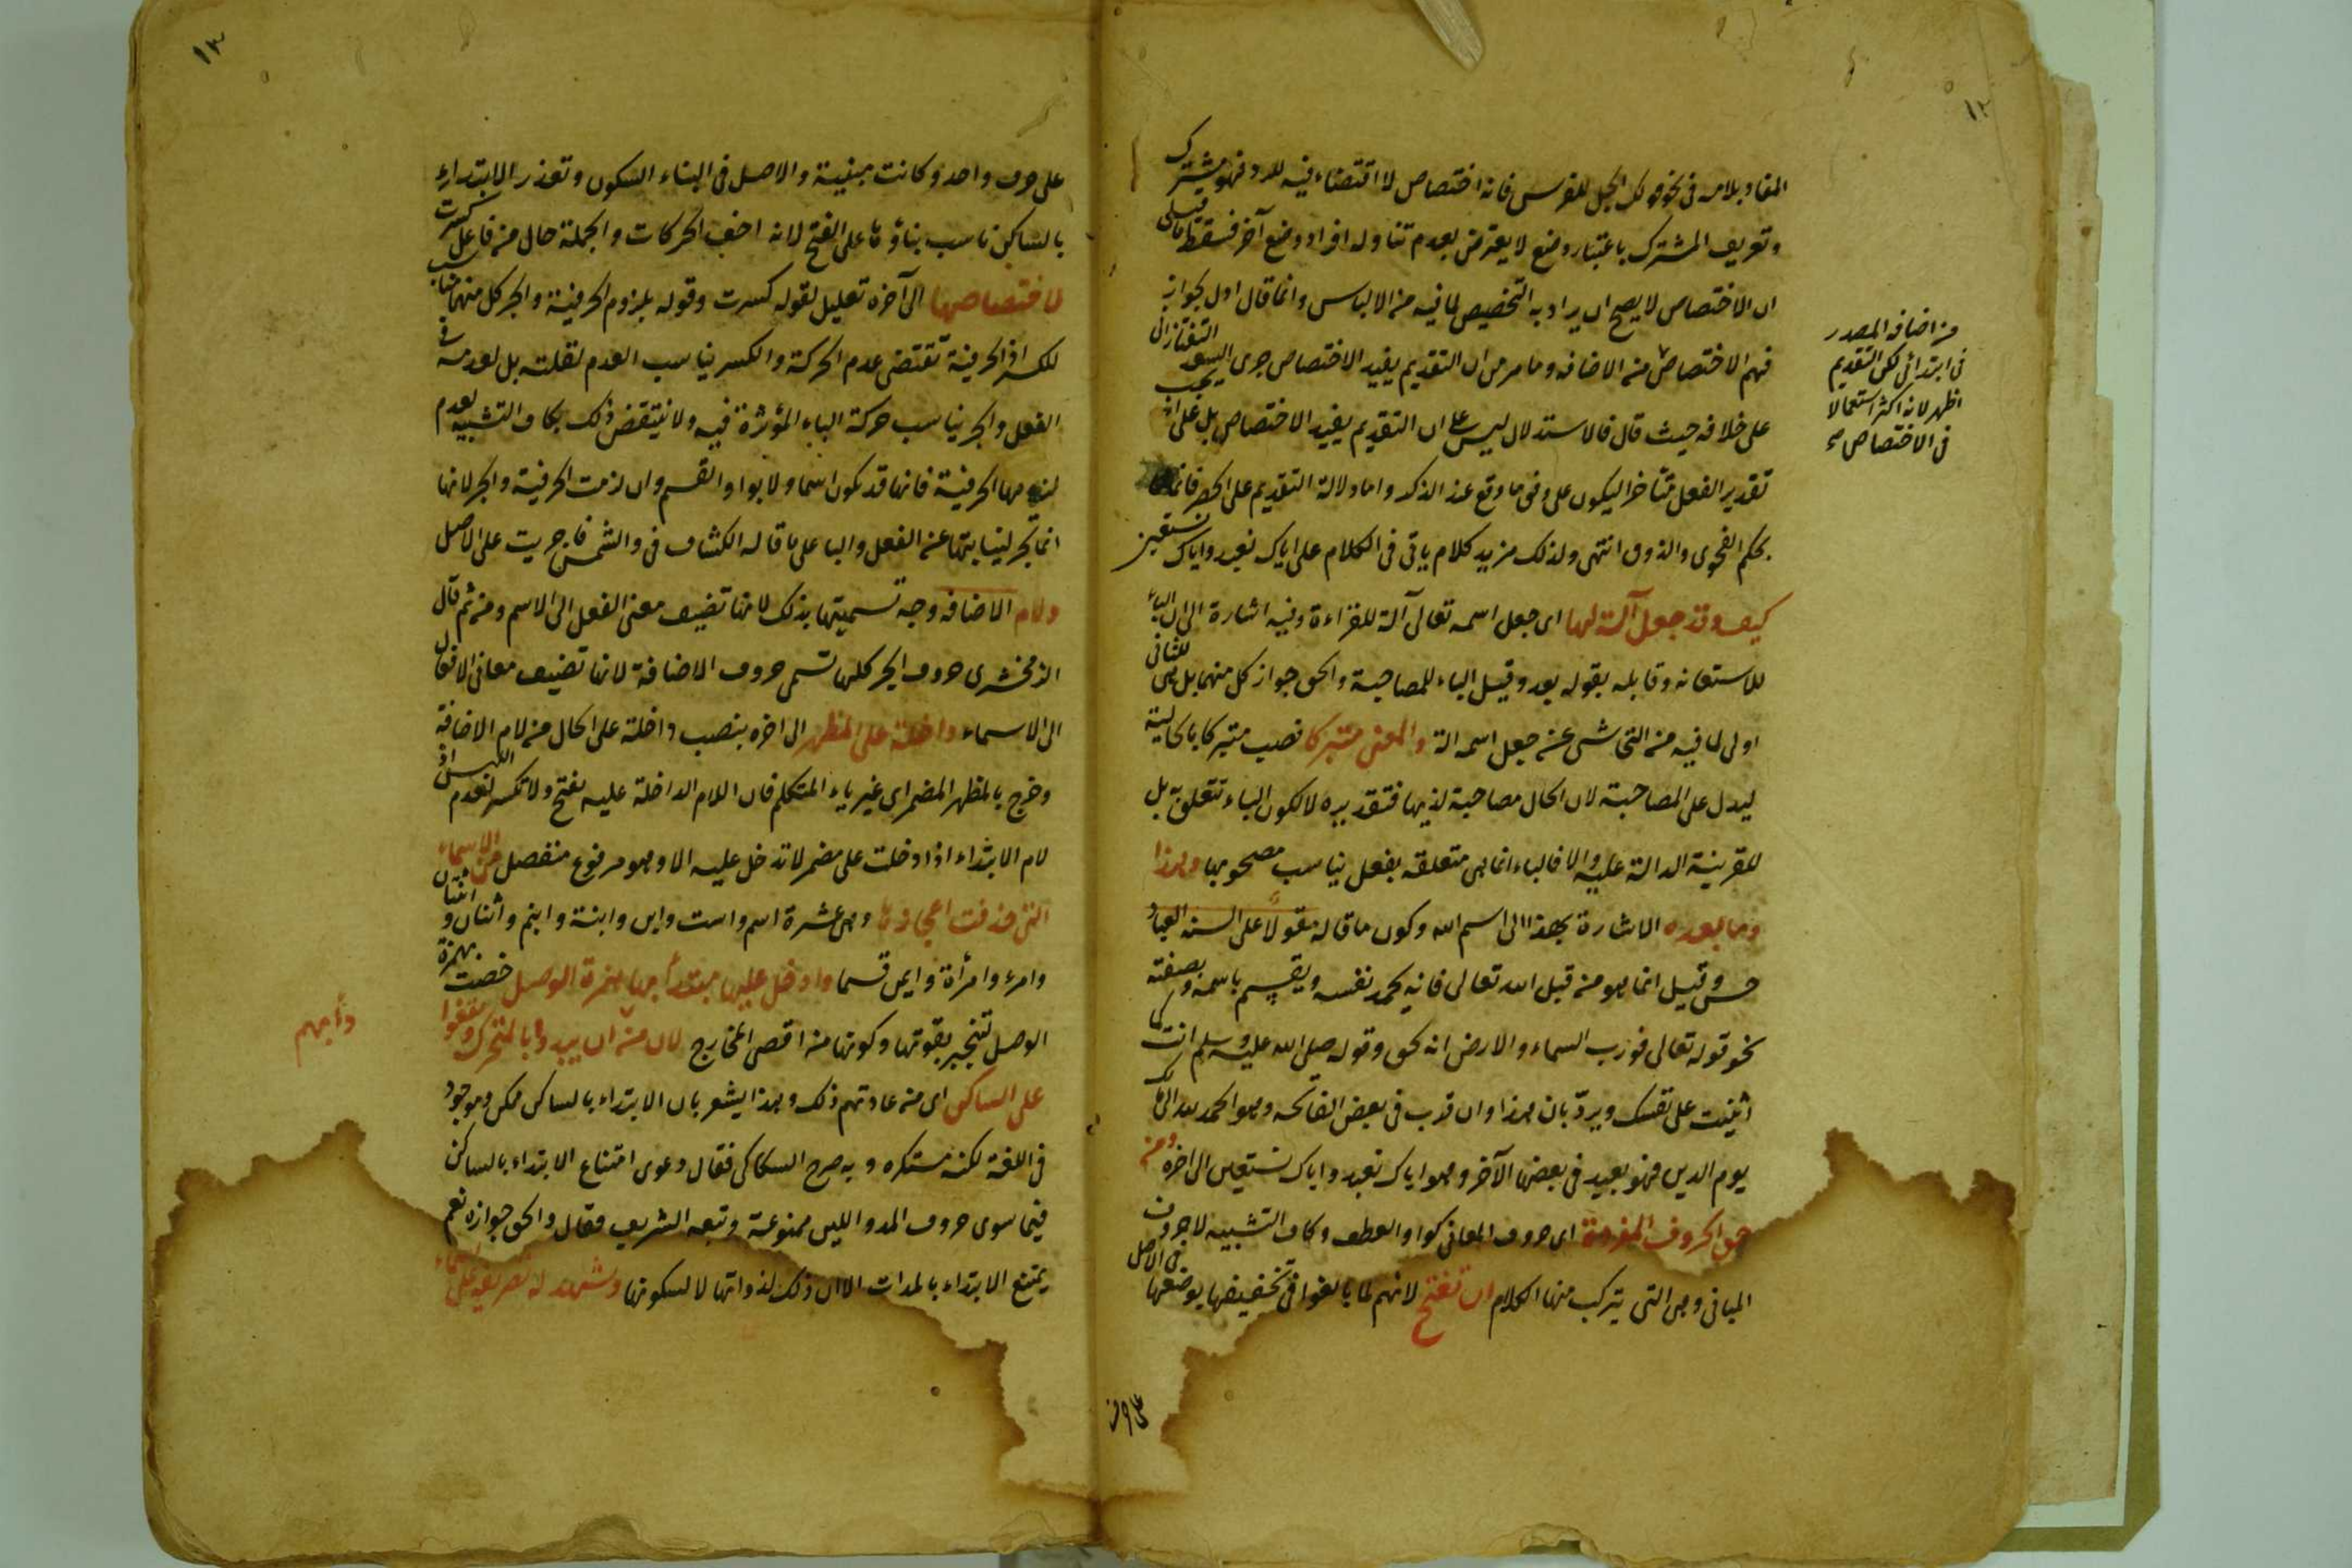 ١٢
المفاد بلامه فى نحو قولك الجل للفرس فانه اختصاص لا اقتضاء فيه للرد فهو مشترك
وتعريف المشترك باعتبار وضع لا يعترض بعدم تناوله افراد وضع آخر فسقط ما قيل
ان الاختصاص لا يصح ان يراد به التخصيص لما فيه من الالباس وانما قال اول بجوابه
فهم الاختصاص من الاضافه وما مر من ان التقديم يفيد الاختصاص جرى السعد التفتازانى
على خلافه حيث قال فالاستدلال ليس على ان التقديم يفيد الاختصاص بل على انه يجب
تقدير الفعل متأخرا ليكون على وفق ما وقع عند الذكر واما دلالة التقديم على الحصر فانما
بحكم الفحوى والذوق انتهى ولذلك مزيد كلام ياتى فى الكلام على اياك نعبد واياك نستعين
كيف وقد جعل آلة لها اى جعل اسمه تعالى آلة للقراءة وفيه اشارة الى ان الباء
للاستعانه وقابله بقوله بعد وقيل الباء للمصاحبة والحق جواز كل منهما بل هى للثانى
اولى لما فيه من التحاشى عن جعل اسمه الة والمعنى متبركا نصب متبركا بالحالية
ليدل على المصاحبة لان الحال مصاحبة لذيها فتقديره لا لكون الباء تتعلق بل
للقرينة الدالة عليه والا فالباء انما هى متعلقه بفعل يناسب مصحوبها وهذا
وما بعده الاشارة بهذا الى اسم الله وكون ما قاله مقولا على السنه العباد
حسن وقيل انما هو من قبل الله تعالى فانه يحمد نفسه ويقسم باسمه وبصفته
نحو قوله تعالى فورب السماء والارض انه لحق وقوله صلى الله عليه وسلم انت كما
اثنيت على نفسك ويردّ بان هذا وان قرب فى بعض الفاتحه وهو الحمد لله الى ملك
يوم الدين فهو بعيد فى بعضها الآخر وهو اياك نعبد واياك نستعين الى اخره ومن
حق الحروف المفردة اى حروف المعانى كواو العطف وكاف التشبيه لا حروف
المبانى وهى التى يتركب منها الكلام ان تفتح لانهم لما بالغوا فى تخفيفها بوضعها فى الاصل
من اضافه المصدر
فى ابتدائى لكن التقديم
اظهر لانه اكثر استعمالا
فى الاختصاص صح
١٣
على حرف واحد وكانت مبنية والاصل فى البناء السكون وتعذر الابتداء
بالساكن ناسب بناؤها على الفتح لانه اخف الحركات والجملة حال من فاعل كسرت
لاختصاصها الى آخره تعليل لقوله كسرت وقوله بلزوم الحرفية والجر كل منهما مناسب
للكسر اذ الحرفية تقتضى عدم الحركة والكسر يناسب العدم لقلته بل لعدمه فى
الفعل والجر يناسب حركة الباء المؤثرة فيه ولا ينتقض ذلك بكاف التشبيه لعدم
لزومها الحرفية فانها قد تكون اسما ولا بواو القسم وان لزمت الحرفية والجر لانها
انما تجر لنيابتها عن الفعل والبا على ما قاله الكشاف فى والشمس فاجريت على الاصل
ولام الاضافه وجه تسميتها بذلك لانها تضيف معنى الفعل الى الاسم ومن ثم قال
الزمخشرى حروف الجر كلها تسمى حروف الاضافة لانها تضيف معانى الافعال
الى الاسماء داخلة على المظهر الى اخره بنصب داخلة على الحال من لام الاضافة
وخرج بالمظهر المضمر اى غير ياء المتكلم فان اللام الداخلة عليه تفتح ولا تكسر لعدم اللبس اذ
لام الابتداء اذا دخلت على مضمر لا تدخل عليه الا وهو مرفوع منفصل من الاسماء
التى حذفت اعجازها وهى عشرة اسم واست وابن وابنة وابنم واثنان واثنتان
وامرء وامرأة وايمن قسما وادخل عليها مبتدأ بها همزة الوصل خصت همزة
الوصل تنجبر بقوتها وكونها من اقصى المخارج لان من ان يبدؤا بالمتحرك ويقفوا
على الساكن اى من عادتهم ذلك وهذا يشعر بان الابتداء بالساكن ممكن وموجود
فى اللغة لكنه مستكره وبه صرح السكاكى فقال دعوى امتناع الابتداء بالساكن
فيما سوى حروف المد واللين ممنوعة وتبعه الشريف فقال والحق جوازه نعم
يمتنع الابتداء بالمدات الا ان ذلك لذواتها لا لسكونها ويشهد له تصريفه على اسماء
دأبهم